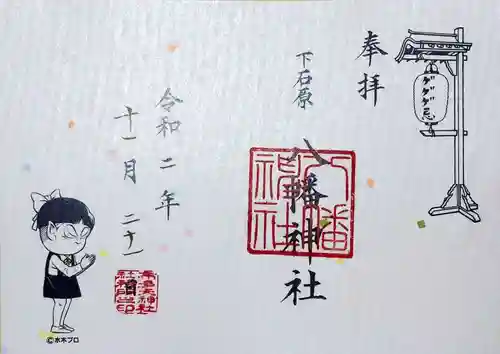 奉拝
ゲゲゲ忌
下石原
八幡神社
八幡神社
令和二年
十一月二十一
©水木プロ